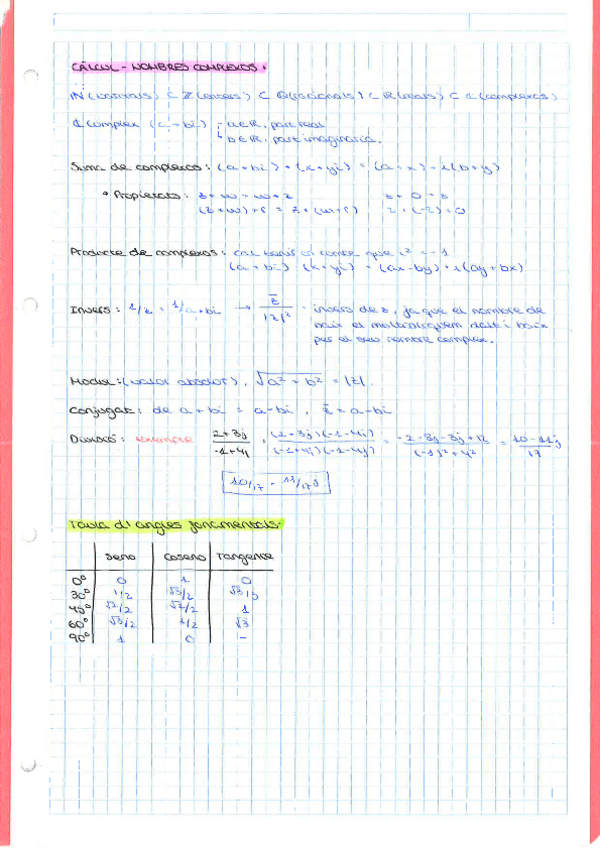 CÀLCUL - NOMBRES COMPLEXOS.
IN (naturals) ⊂ Z (enters) ⊂ Q (racionals) ⊂ R (reals) ⊂ ℂ (complexos)
1 complex (a + bi) - a∈R, part real
b∈R, part imaginaria.
Suma de complexos: (a+bi) + (x+yi) = (a+x) + i(b+y)
• Propietats: z + w = w + z z + 0 = z
(z+w)+r = z + (w+r) z + (-z) = 0
Producte de complexos: cal tenir en conte que i² = -1
(a+bi) (x+yi) = (ax-by) + i(ay+bx)
Invers: 1/z = 1/a+bi → z̄/|z|² · invers de z, ja que el nombre de
baix el multipliquem dalt i baix
per el seu nombre complex.
Mòdul: (valor absolut), √a² + b² = |z|.
Conjugat: de a + bi = a-bi, z̄ = a-bi
Divisió: exemple 2+3j/-1+4j = (2+3j)(-1-4j)/(-1+4j)(-1-4j) = -2-8j-3j+12/(-1)²+4² = 10-11j/17
10/17 - 11/17 j
Taula d'angles fonamentals.
Seno Coseno Tangente
0º 0 1 0
30º 1/2 √3/2 √3/3
45º √2/2 √2/2 1
60º √3/2 1/2 √3
90º 1 0 -